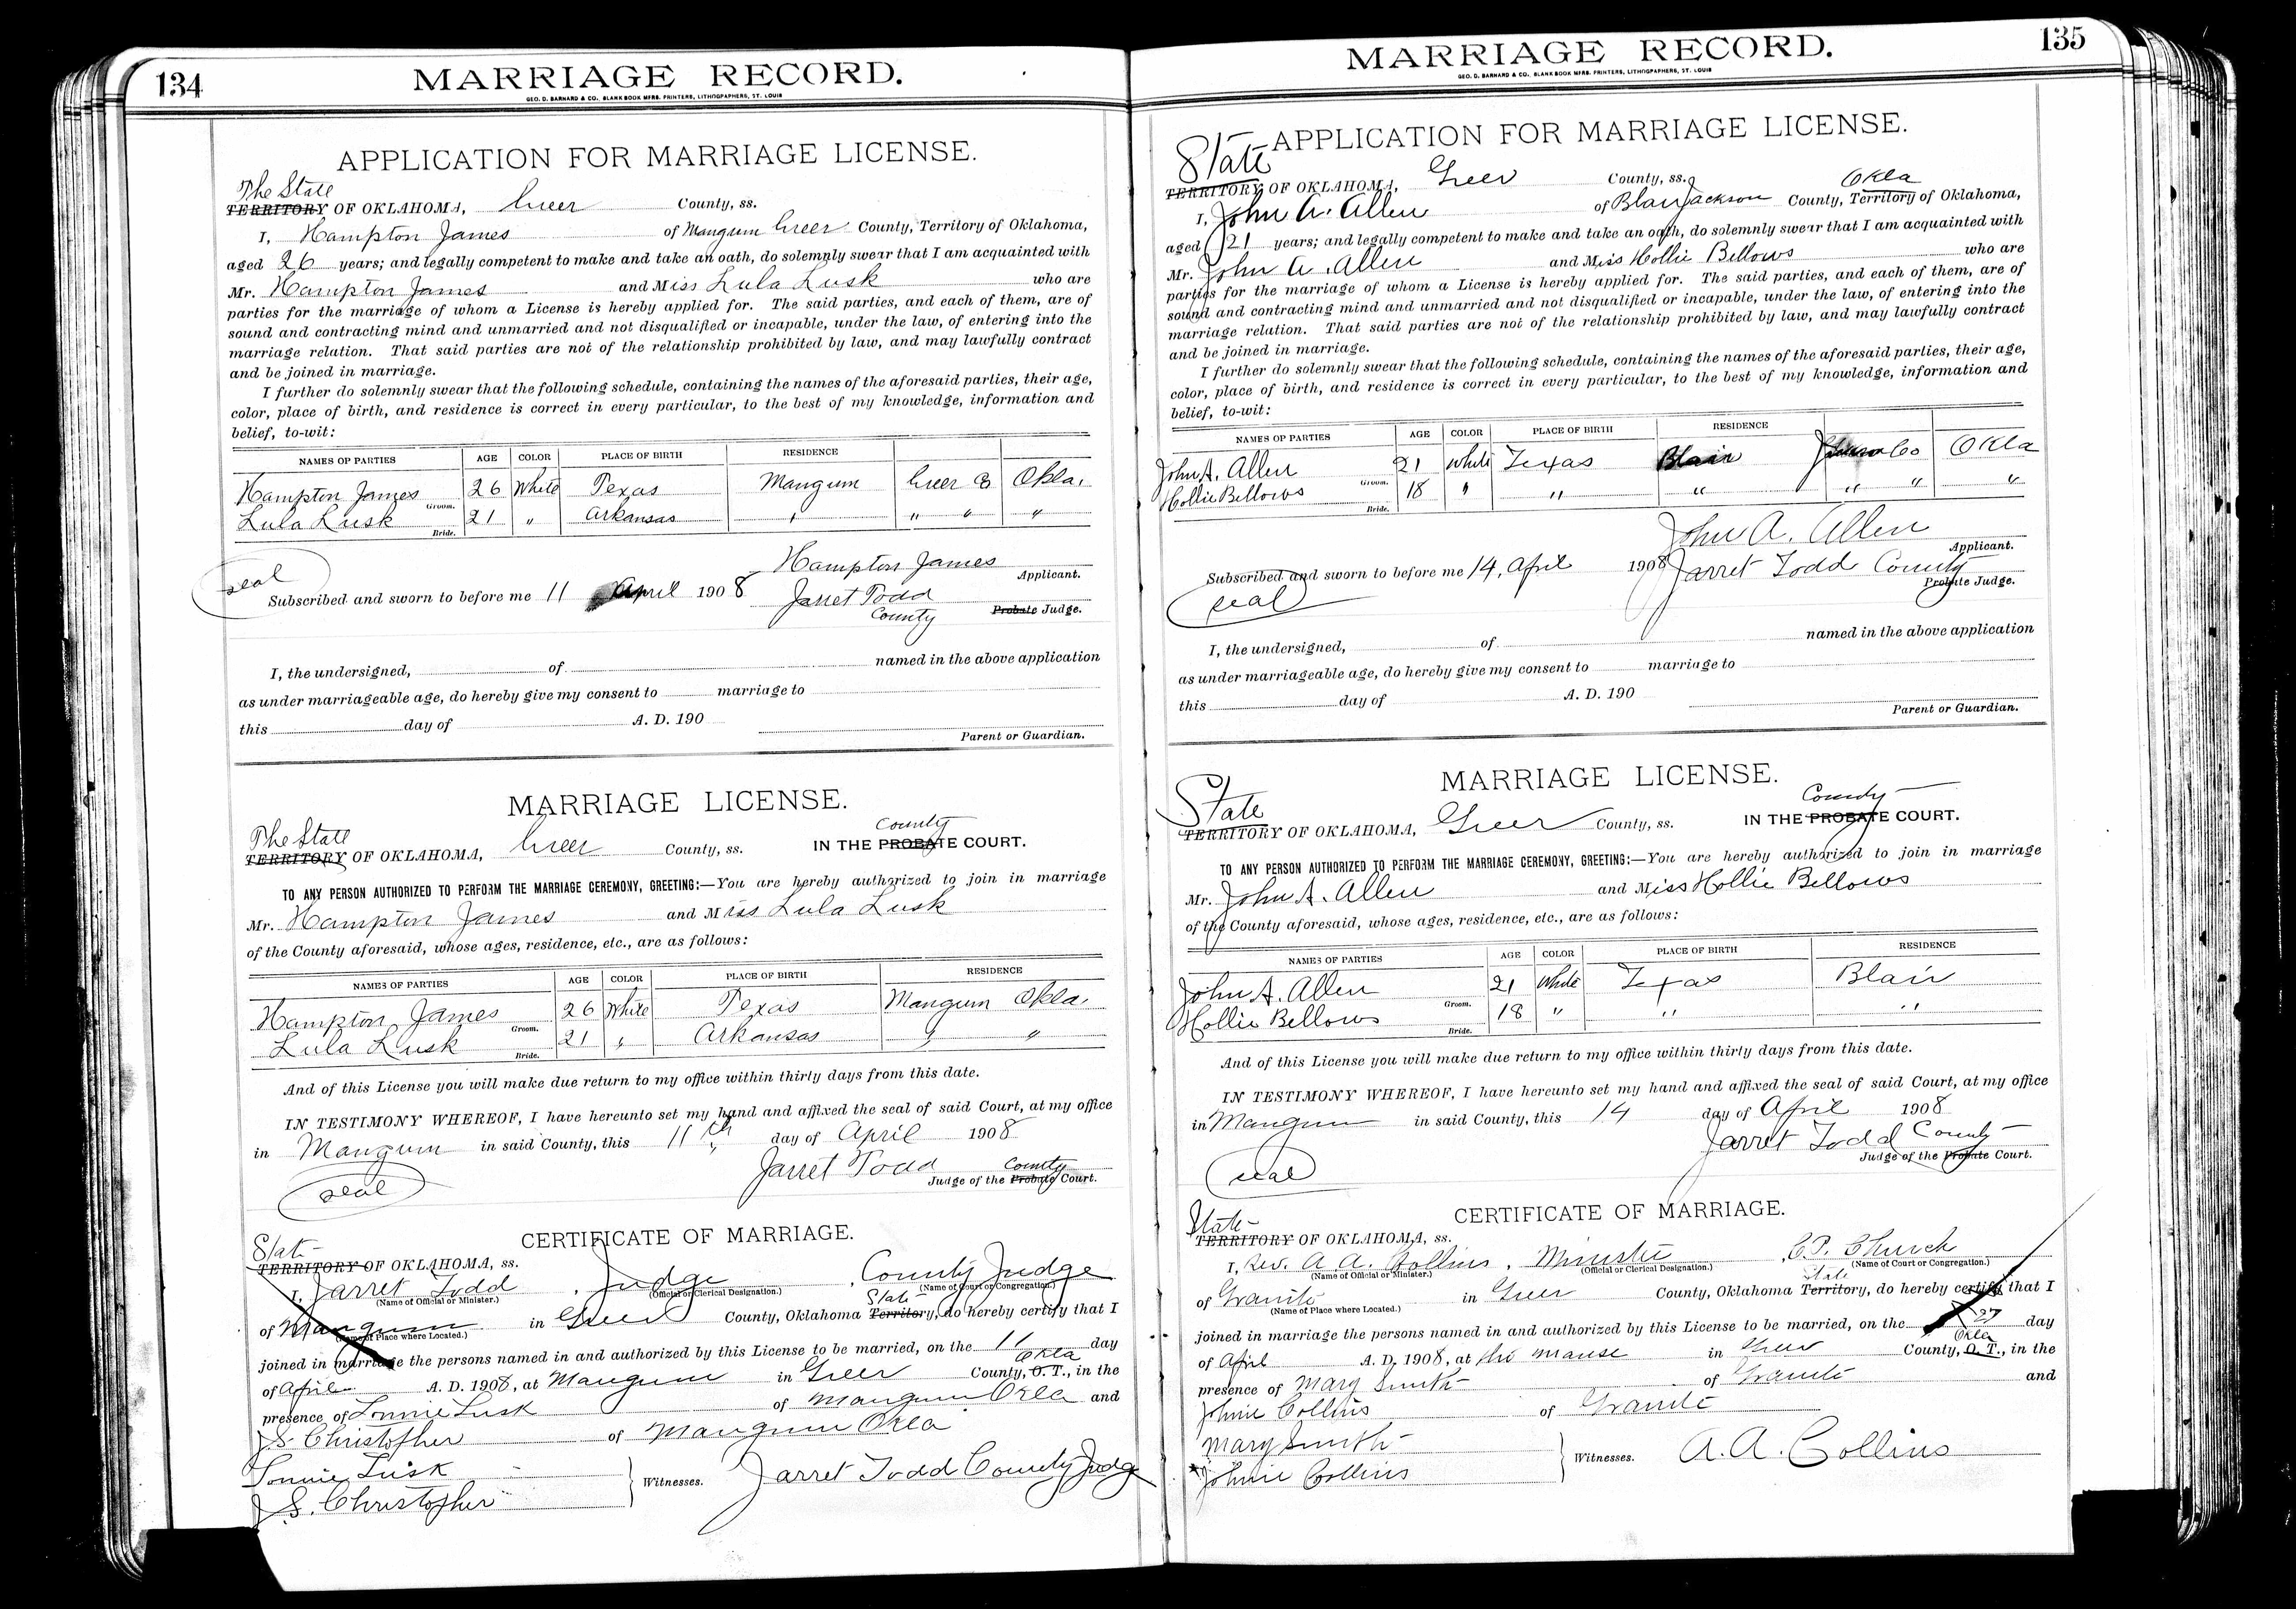 134
MARRIAGE RECORD.
GEO. D. BARNARD & CO. BLANK BOOK MFRS. PRINTERS, LITHOGRAPHERS, ST. LOUIS
APPLICATION FOR MARRIAGE LICENSE.
The State
TERRITORY OF OKLAHOMA, Greer County, ss.
I, Hampton James of Mangum Greer County, Territory of Oklahoma,
aged 26 years; and legally competent to make and take an oath, do solemnly swear that I am acquainted with
Mr. Hampton James and Miss Lula Lusk who are
parties for the marriage of whom a License is hereby applied for. The said parties, and each of them, are of
sound and contracting mind and unmarried and not disqualified or incapable, under the law, of entering into the
marriage relation. That said parties are not of the relationship prohibited by law, and may lawfully contract
and be joined in marriage.
I further do solemnly swear that the following schedule, containing the names of the aforesaid parties, their age,
color, place of birth, and residence is correct in every particular, to the best of my knowledge, information and
belief, to-wit:
NAMES OF PARTIES AGE COLOR PLACE OF BIRTH RESIDENCE
Hampton James Groom. 26 White Texas Mangum Greer Co Okla.
Lula Lusk Bride. 21 " Arkansas " " " "
Hampton James
Applicant.
seal
Subscribed and sworn to before me 11 April 1908 Jarret Todd
County Probate Judge.
I, the undersigned, of named in the above application
as under marriageable age, do hereby give my consent to marriage to
this day of A. D. 190
Parent or Guardian.
MARRIAGE LICENSE.
The State County
TERRITORY OF OKLAHOMA, Greer County, ss. IN THE PROBATE COURT.
TO ANY PERSON AUTHORIZED TO PERFORM THE MARRIAGE CEREMONY, GREETING:—You are hereby authorized to join in marriage
Mr. Hampton James and Miss Lula Lusk
of the County aforesaid, whose ages, residence, etc., are as follows:
NAMES OF PARTIES AGE COLOR PLACE OF BIRTH RESIDENCE
Hampton James Groom. 26 White Texas Mangum Okla.
Lula Lusk Bride. 21 " Arkansas " "
And of this License you will make due return to my office within thirty days from this date.
IN TESTIMONY WHEREOF, I have hereunto set my hand and affixed the seal of said Court, at my office
in Mangum in said County, this 11th day of April 1908
Jarret Todd County
Judge of the Probate Court.
seal
CERTIFICATE OF MARRIAGE.
State
TERRITORY OF OKLAHOMA, ss.
I, Jarret Todd, Judge, County Judge
(Name of Official or Minister.) (Official or Clerical Designation.) (Name of Court or Congregation.)
State
of Mangum in Greer County, Oklahoma Territory, do hereby certify that I
(Name of Place where Located.)
joined in marriage the persons named in and authorized by this License to be married, on the 11 day
Okla
of April A. D. 1908, at Mangum in Greer County, O. T., in the
presence of Lonnie Lusk of Mangum Okla and
J S. Christopher of Mangum Okla
Lonnie Lusk
J S. Christopher
Witnesses. Jarret Todd County Judge
135
MARRIAGE RECORD.
GEO. D. BARNARD & CO. BLANK BOOK MFRS. PRINTERS, LITHOGRAPHERS, ST. LOUIS
APPLICATION FOR MARRIAGE LICENSE.
State Okla
TERRITORY OF OKLAHOMA, Greer County, ss.
I, John A. Allen of Blair Jackson County, Territory of Oklahoma,
aged 21 years; and legally competent to make and take an oath, do solemnly swear that I am acquainted with
Mr. John A. Allen and Miss Hollie Bellows who are
parties for the marriage of whom a License is hereby applied for. The said parties, and each of them, are of
sound and contracting mind and unmarried and not disqualified or incapable, under the law, of entering into the
marriage relation. That said parties are not of the relationship prohibited by law, and may lawfully contract
and be joined in marriage.
I further do solemnly swear that the following schedule, containing the names of the aforesaid parties, their age,
color, place of birth, and residence is correct in every particular, to the best of my knowledge, information and
belief, to-wit:
NAMES OF PARTIES AGE COLOR PLACE OF BIRTH RESIDENCE
John A. Allen Groom. 21 White Texas Blair Co Okla
Hollie Bellows Bride. 18 " " " " " "
John A. Allen
Applicant.
Subscribed and sworn to before me 14, April 1908 Jarret Todd County
Probate Judge.
seal
I, the undersigned, of named in the above application
as under marriageable age, do hereby give my consent to marriage to
this day of A. D. 190
Parent or Guardian.
MARRIAGE LICENSE.
State County
TERRITORY OF OKLAHOMA, Greer County, ss. IN THE PROBATE COURT.
TO ANY PERSON AUTHORIZED TO PERFORM THE MARRIAGE CEREMONY, GREETING:—You are hereby authorized to join in marriage
Mr. John A. Allen and Miss Hollie Bellows
of the County aforesaid, whose ages, residence, etc., are as follows:
NAMES OF PARTIES AGE COLOR PLACE OF BIRTH RESIDENCE
John A. Allen Groom. 21 White Texas Blair
Hollie Bellows Bride. 18 " " "
And of this License you will make due return to my office within thirty days from this date.
IN TESTIMONY WHEREOF, I have hereunto set my hand and affixed the seal of said Court, at my office
in Mangum in said County, this 14 day of April 1908
Jarret Todd County
Judge of the Probate Court.
seal
CERTIFICATE OF MARRIAGE.
State
TERRITORY OF OKLAHOMA, ss.
I, Rev. A A. Collins, Minister, C.P. Church
(Name of Official or Minister.) (Official or Clerical Designation.) (Name of Court or Congregation.)
State
of Granite in Greer County, Oklahoma Territory, do hereby certify that I
(Name of Place where Located.)
joined in marriage the persons named in and authorized by this License to be married, on the 27 day
Okla
of April A. D. 1908, at the manse in Greer County, O. T., in the
presence of Mary Smith of Granite and
Johnie Collins of Granite
Mary Smith
Johnie Collins
Witnesses. A. A. Collins